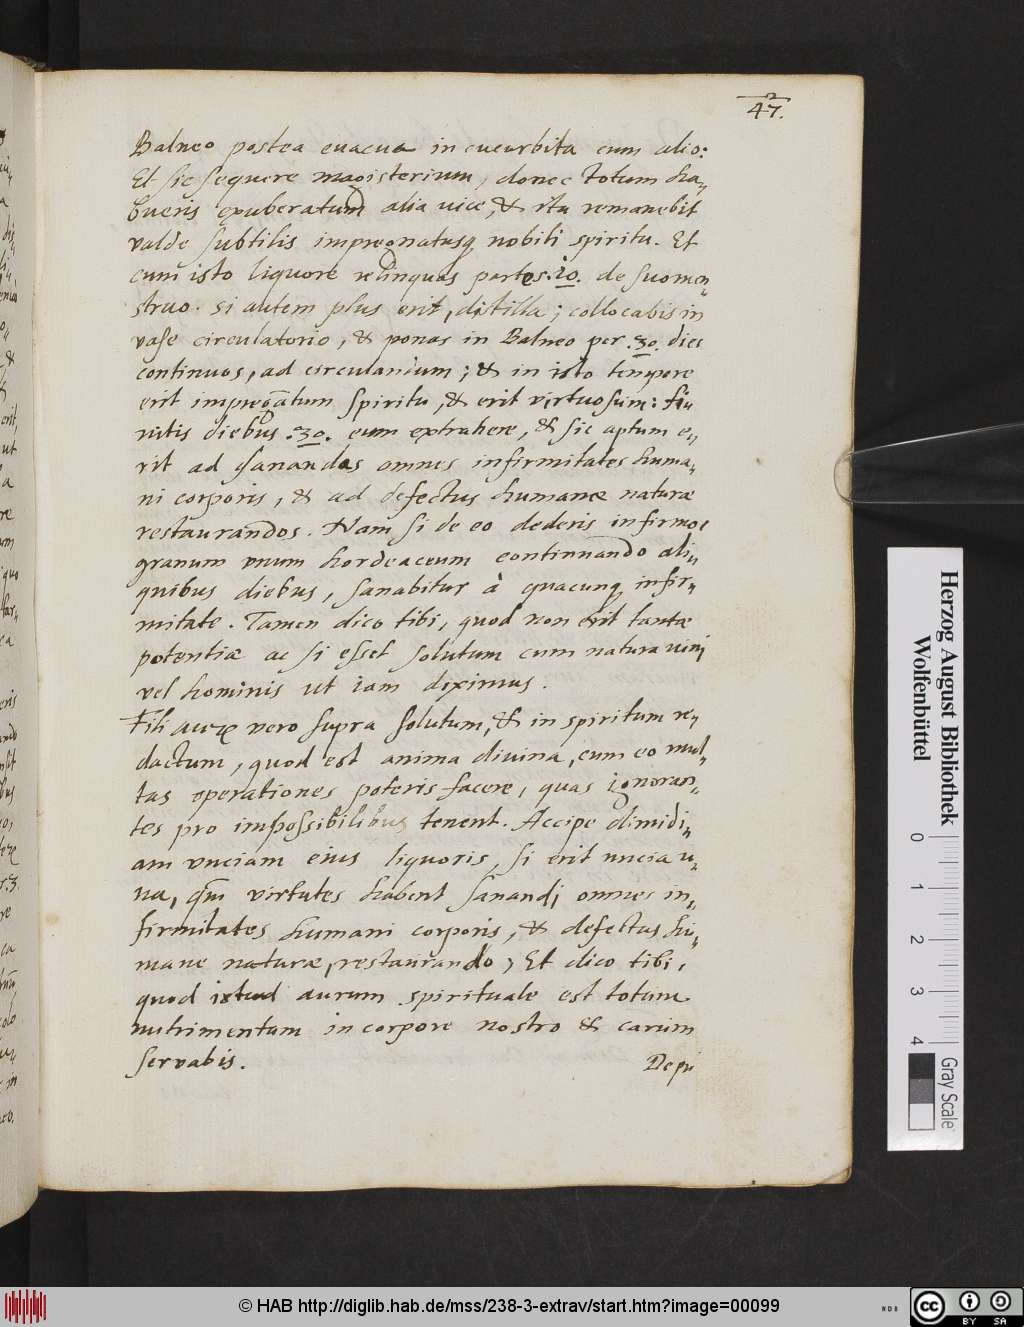 47.
Balneo postea euacua in cucurbita cum alio:
Et sic sequere magisterium, donec totum ha„
bueris exuberatum alia uice, & ita remanebit
valde subtilis impregnatusq nobili spiritu. Et
cum isto liquore relinquas partes .10. de suo men„
struo. Si autem plus erit, distilla; collocabis in
vase circulatorio, & ponas in Balneo per .30. dies
continuos, ad circulandum; & in isto tempore
erit impregnatum spiritu, & erit virtuosum: fi„
nitis diebus .30. eum extrahere, & sic aptum e„
rit ad sanandas omnes infirmitates huma„
ni corporis, & ad defectus humanæ naturæ
restaurandos. Nam si de eo dederis infirmo
granum unum hordeaceum continuando ali„
quibus diebus, sanabitur à quacunq infir„
mitate. Tamen dico tibi, quod non erit tantæ
potentiæ ac si esset solutum cum natura uini
vel hominis ut iam diximus.
Fili vero supra solutum, & in spiritum re„
dactum, quod est anima diuina, cum eo mul„
tas operationes poteris facere, quas ignoran„
tes pro impossibilibus tenent. Accipe dimidi„
am unciam eius liquoris, si erit uncia u„
na, qm virtutes habent sanandi omnes in„
firmitates humani corporis, & defectus hu„
mane naturæ, restaurando; Et dico tibi,
quod istud aurum spirituale est totum
nutrimentum in corpore nostro & carum
servabis.
De pri
Herzog August Bibliothek
Wolfenbüttel
0 1 2 3 4
Gray Scale
© HAB http://diglib.hab.de/mss/238-3-extrav/start.htm?image=00099
CC BY SA